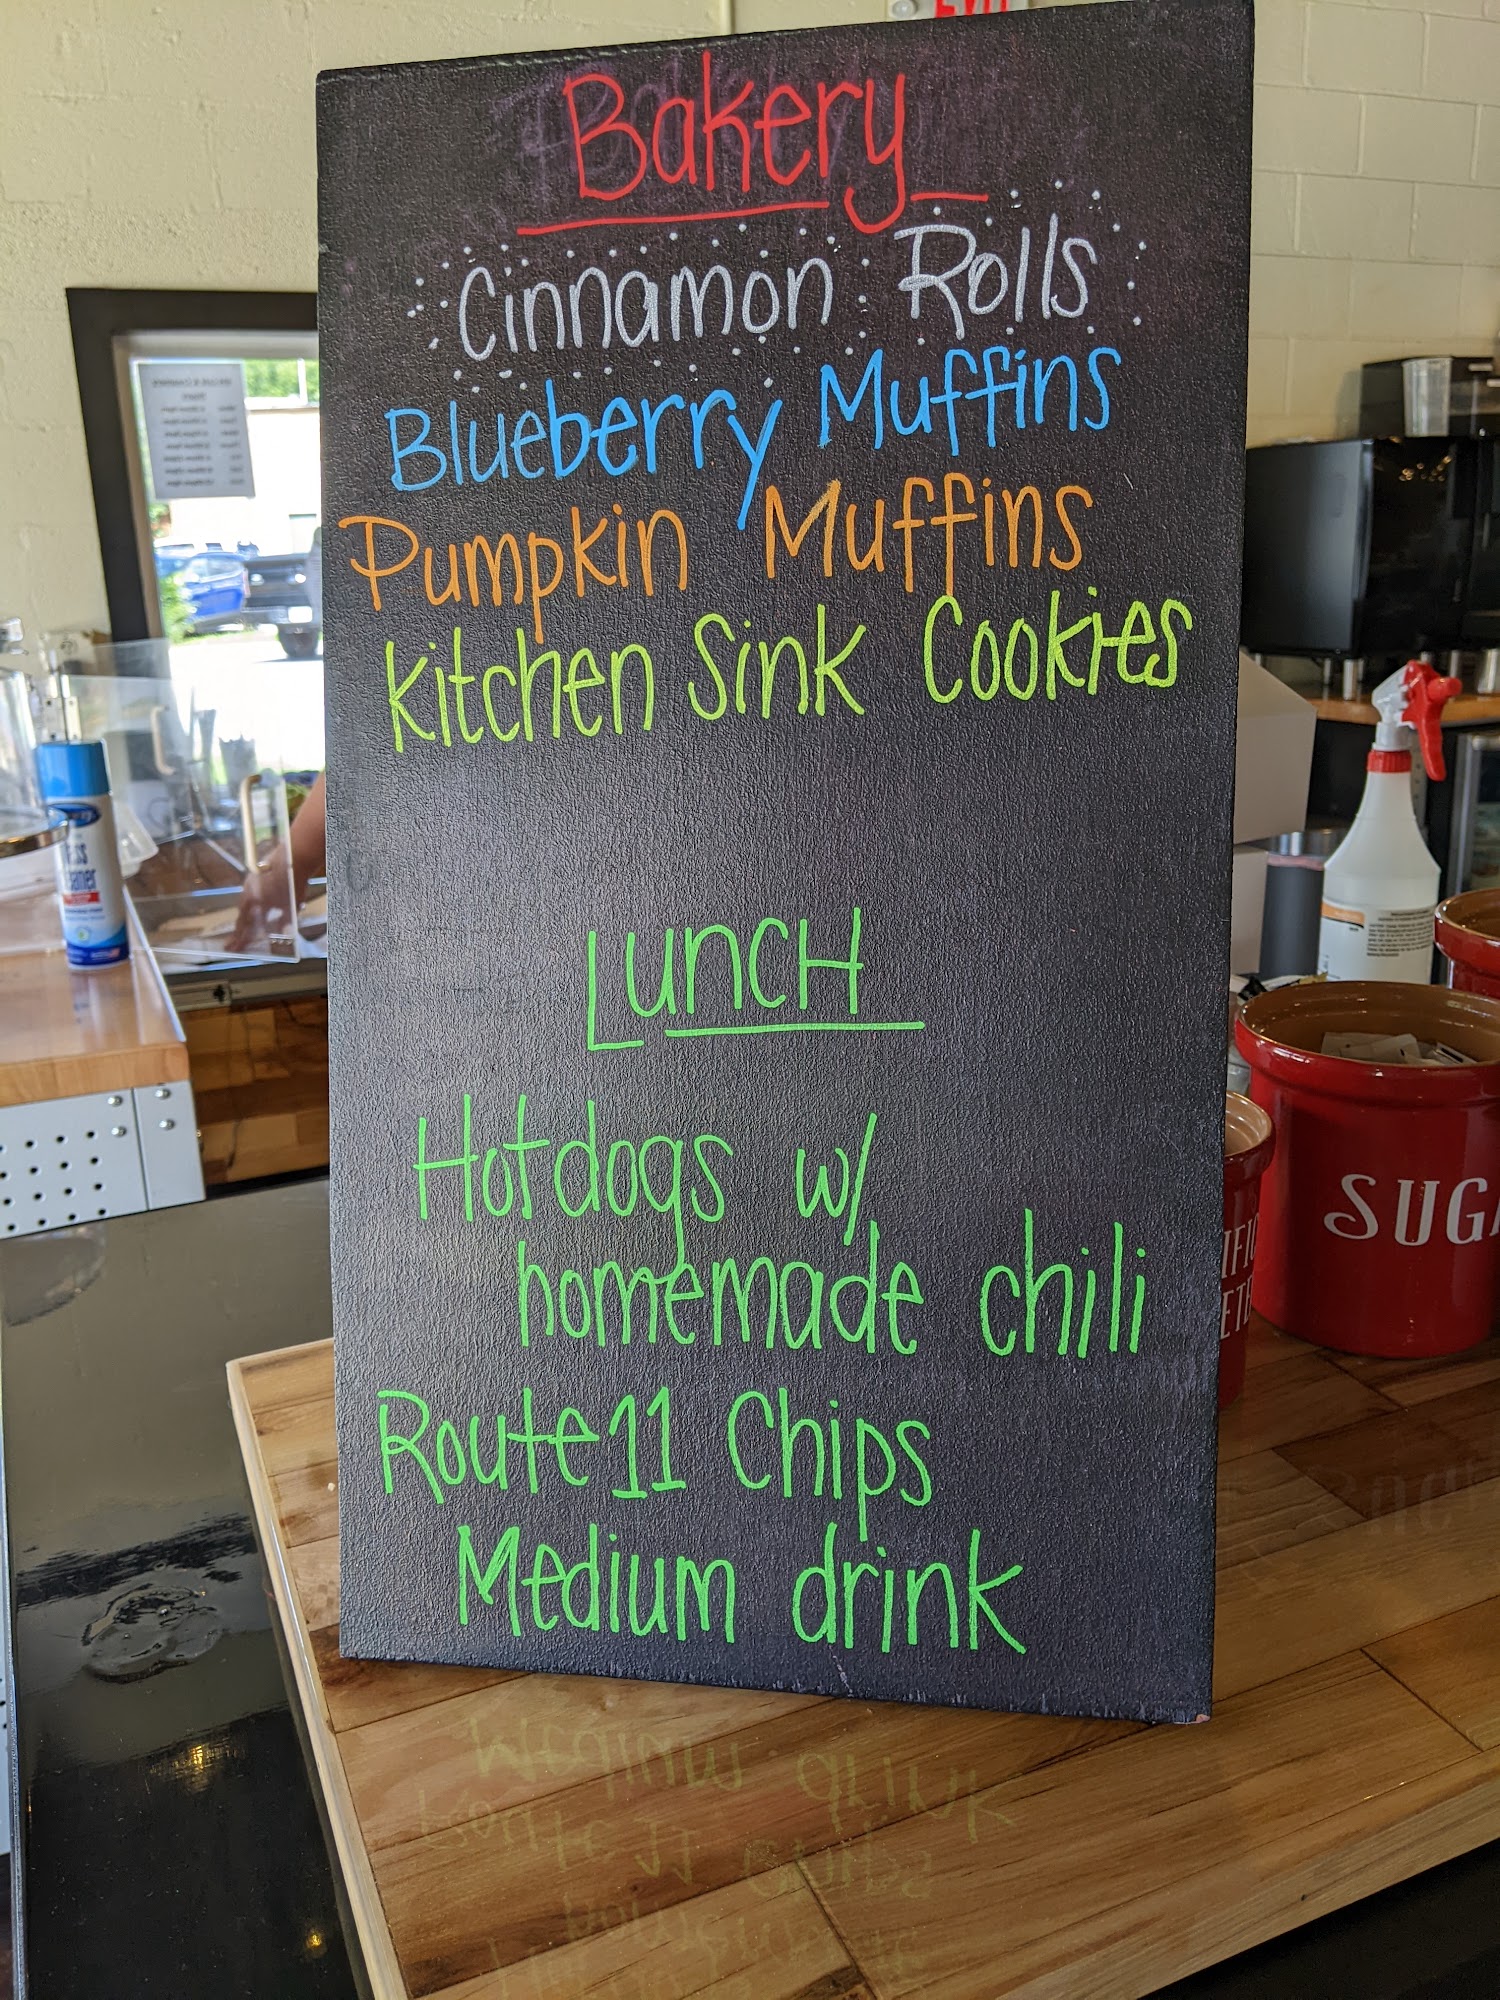 EXIT
Bakery
Cinnamon Rolls
Blueberry Muffins
Pumpkin Muffins
Kitchen Sink Cookies
LunCH
Hotdogs w/
homemade chili
Route 11 Chips
Medium drink
SUGA